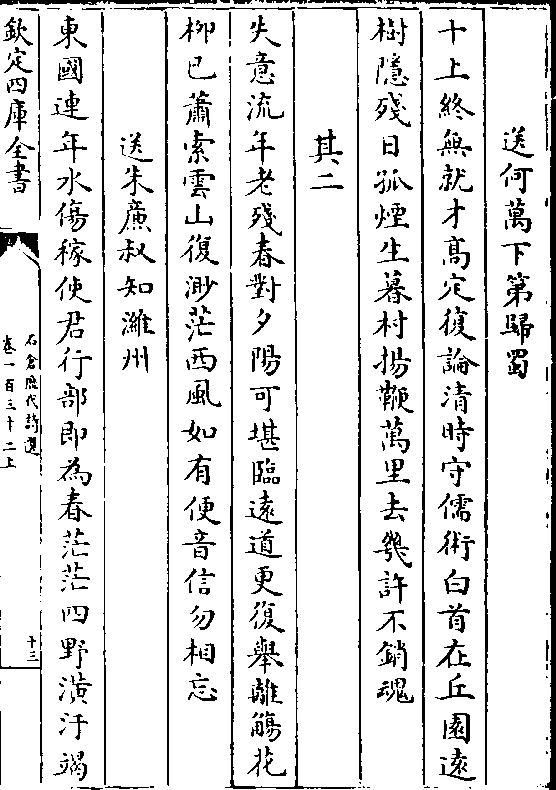 送何萬下第歸蜀
十上終無就才髙定復論清時守儒術白首在丘園逺
樹隱殘日孤煙生暮村揚鞭萬里去幾許不銷魂
其二
失意流年老殘春對夕陽可堪臨逺道更復舉離觴花
柳已蕭索雲山復渺茫西風如有便音信勿相忘
送朱亷叔知濰州
東國連年水傷稼使君行部即為春茫茫四野潢汙竭
欽定四庫全書
石倉歴代詩選
卷一百三十二上
十三